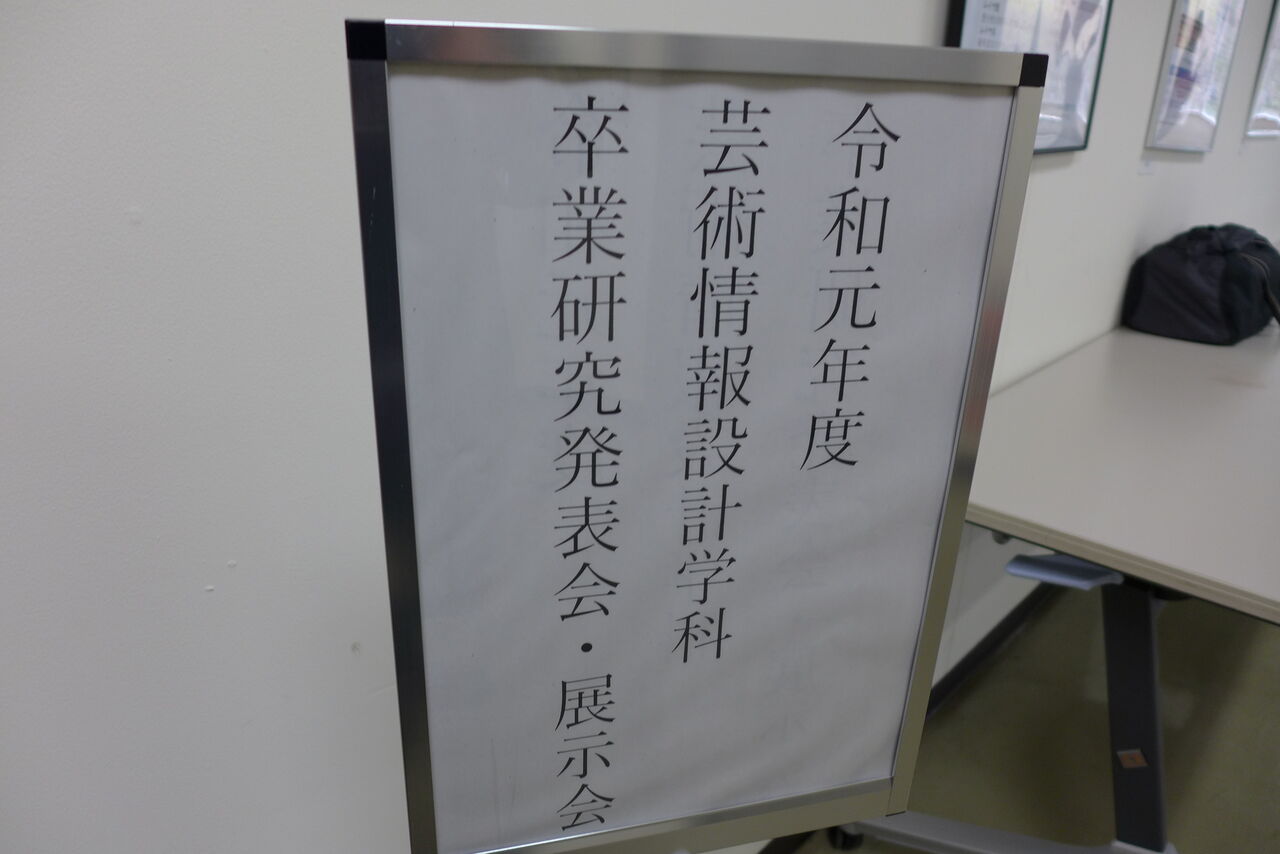 令和元年度
芸術情報設計学科
卒業研究発表会・展示会